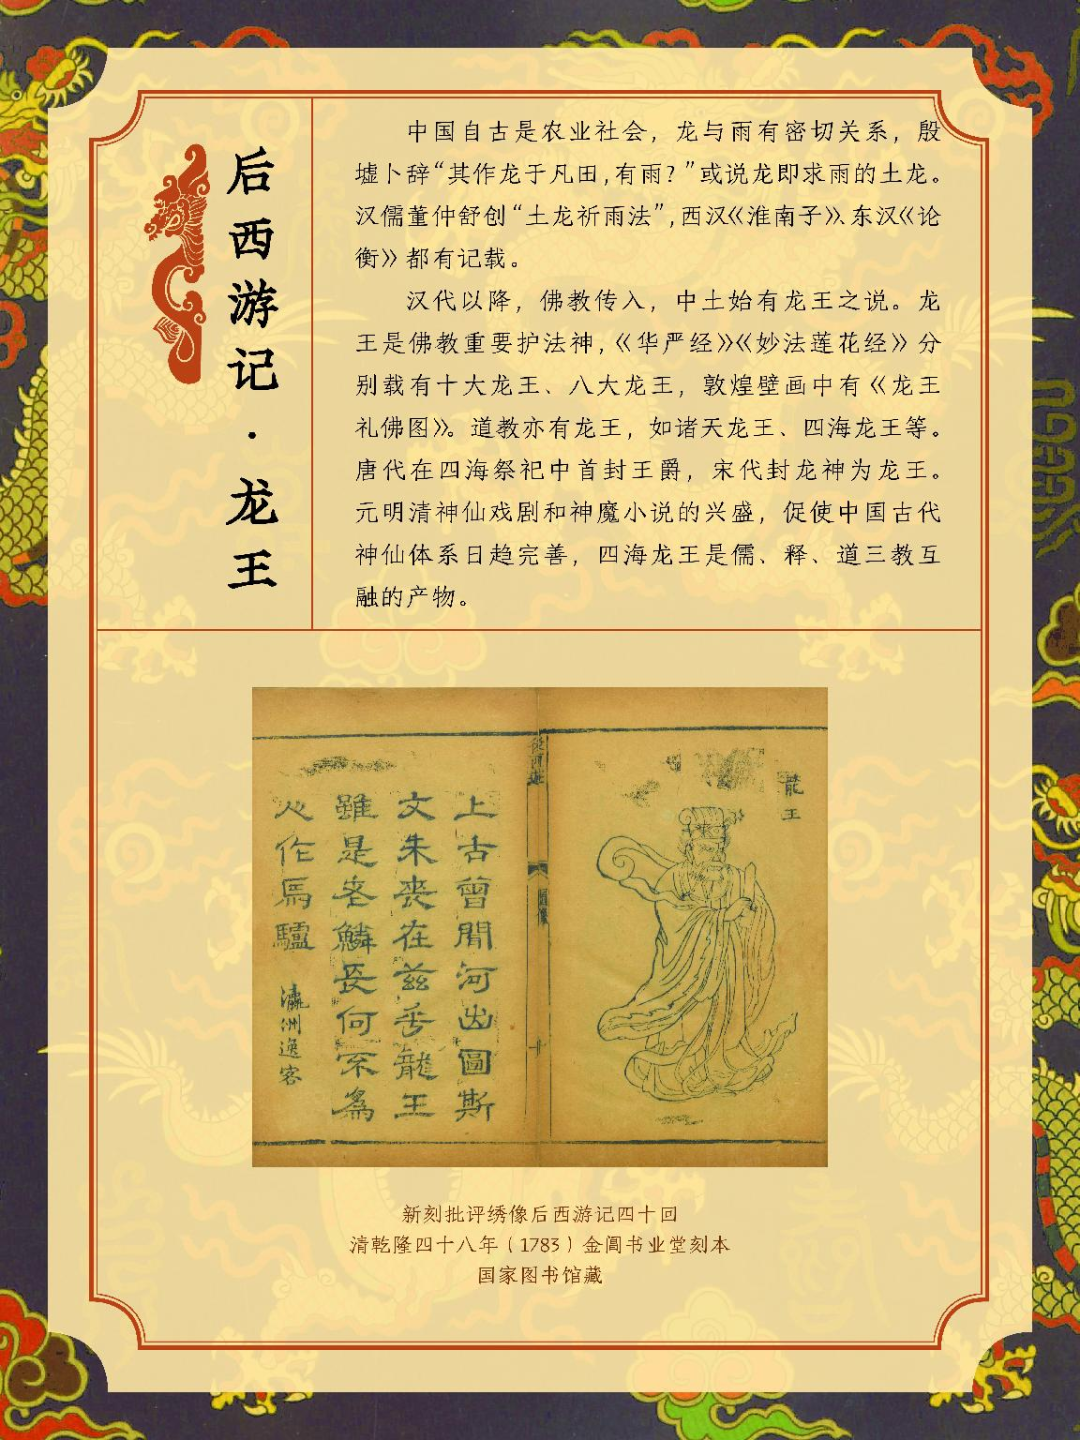 后西游记·龙王
中国自古是农业社会，龙与雨有密切关系，殷
墟卜辞“其作龙于凡田，有雨？”或说龙即求雨的土龙。
汉儒董仲舒创“土龙祈雨法”，西汉《淮南子》、东汉《论
衡》都有记载。
汉代以降，佛教传入，中土始有龙王之说。龙
王是佛教重要护法神，《华严经》《妙法莲花经》分
别载有十大龙王、八大龙王，敦煌壁画中有《龙王
礼佛图》。道教亦有龙王，如诸天龙王、四海龙王等。
唐代在四海祭祀中首封王爵，宋代封龙神为龙王。
元明清神仙戏剧和神魔小说的兴盛，促使中国古代
神仙体系日趋完善，四海龙王是儒、释、道三教互
融的产物。
龍王
圖像
十
上古曾聞河出圖斯
文朱喪在茲乎龍王
雖是老鱗長何不為
心作馬驢
瀛洲逸客
新刻批评绣像后西游记四十回
清乾隆四十八年（1783）金阊书业堂刻本
国家图书馆藏